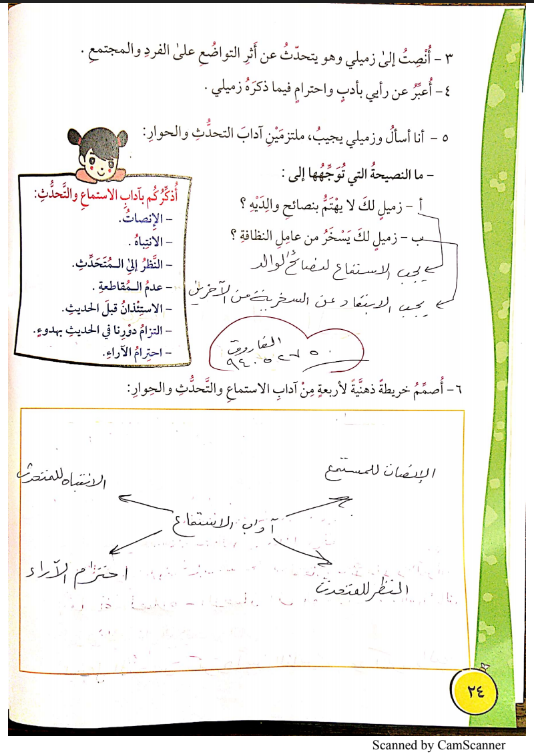 ٣ - أُنْصِتُ إلىٰ زميلي وهو يتحدّثُ عن أَثرِ التواضُعِ علىٰ الفردِ والمجتمعِ .
٤ - أُعبِّرُ عن رأيي بأدبٍ واحترامٍ فيما ذكرَهُ زميلي .
٥ - أنا أسألُ وزميلي يجيبُ، ملتزمَيْنِ آدابَ التحدُّثِ والحوارِ:
– ما النصيحةُ التي تُوَجِّهُها إلى :
أ – زميلٍ لكَ لا يهْتَمُّ بنصائحِ والِدَيْهِ ؟
ب – زميلٍ لكَ يَسْخَرُ من عاملِ النظافةِ ؟
يجب الاستماع لنصائح الوالد
يجب الابتعاد عن السخرية من الآخرين
أُذكِّرُكُم بآدابِ الاستماعِ والتَّحدُّثِ:
– الإنصاتُ.
– الانتِباهُ.
– النَّظرُ إلىٰ الـمُتَحَدِّثِ.
– عدمُ الـمُقاطعةِ.
– الاستِئْذانُ قبلَ الحديثِ.
– التزامُ دوْرِنا في الحديثِ بهدوءٍ.
– احترامُ الآراءِ.
الفاروق
٩٤٠٥٢٧٥٠
٦- أُصمِّمُ خريطةً ذهنيَّةً لأربعةٍ مِنْ آدابِ الاستماعِ والتَّحدُّثِ والحِوارِ:
الإنصات للمستمع
الانتباه للمتحدث
آداب الاستماع
احترام الآراء
النظر للمتحدث
٢٤
Scanned by CamScanner